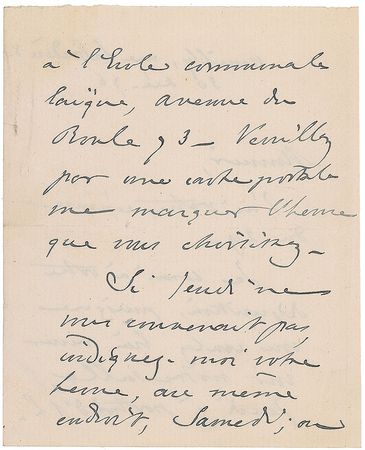 à l'Ecole communale
laïque, avenue du
Roule 93 – Veuillez
par une carte postale
me marquer l'heure
que vous choisissez –
Si Jeudi ne
vous convenait pas
indiquez-moi votre
heure, au même
endroit, Samedi ; ou